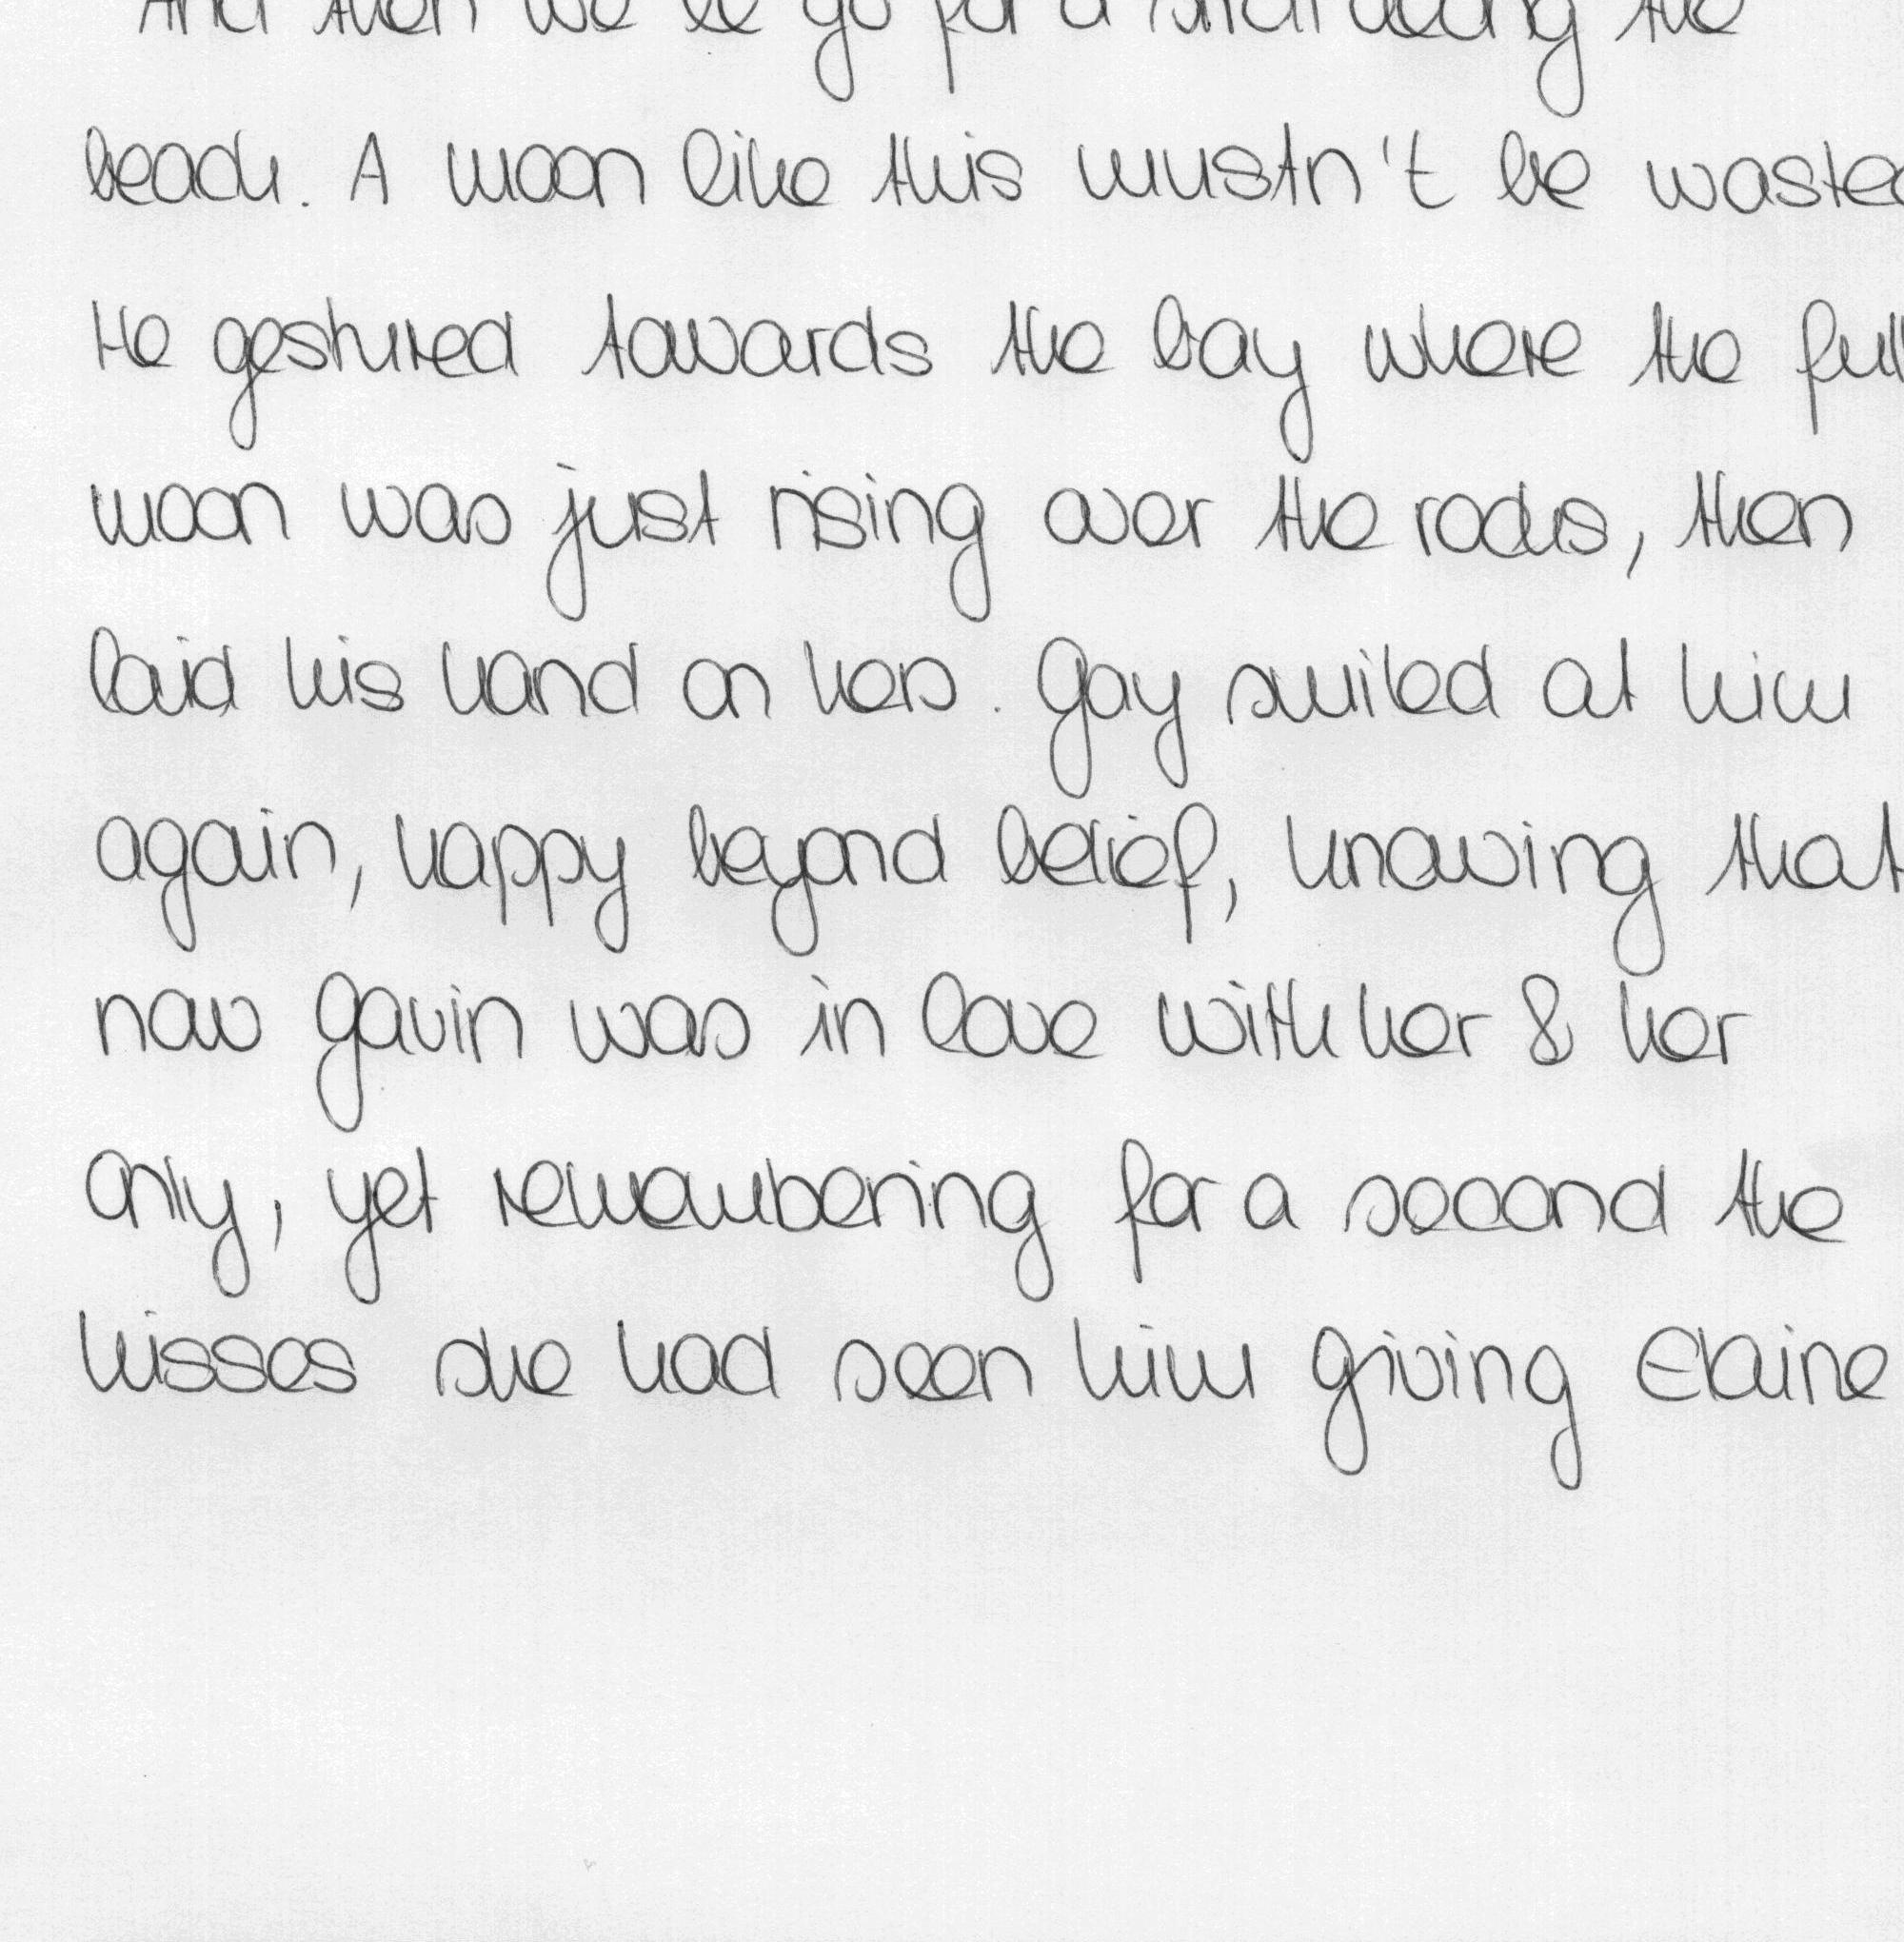 And then we'll go for a stroll along the
beach. A moon like this mustn't be wasted
He gestured towards the bay where the full
moon was just rising over the rocks, then
laid his hand on hers. Gay smiled at him
again, happy beyond belief, knowing that
now Gavin was in love with her & her
only, yet remembering for a second the
kisses she had seen him giving Elaine